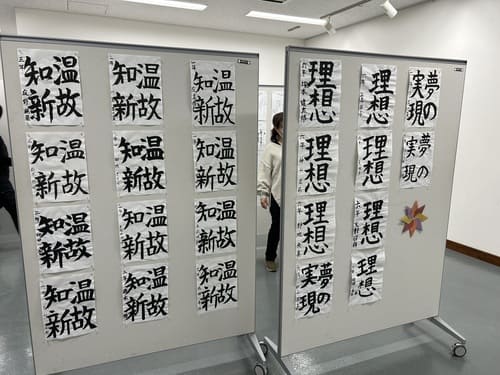 温故
知新
温故
知新
温故
知新
温故
知新
温故
知新
温故
知新
温故
知新
温故
知新
温故
知新
温故
知新
温故
知新
温故
知新
理想
理想
夢の
実現
理想
理想
夢の
実現
理想
理想
夢の
実現
理想